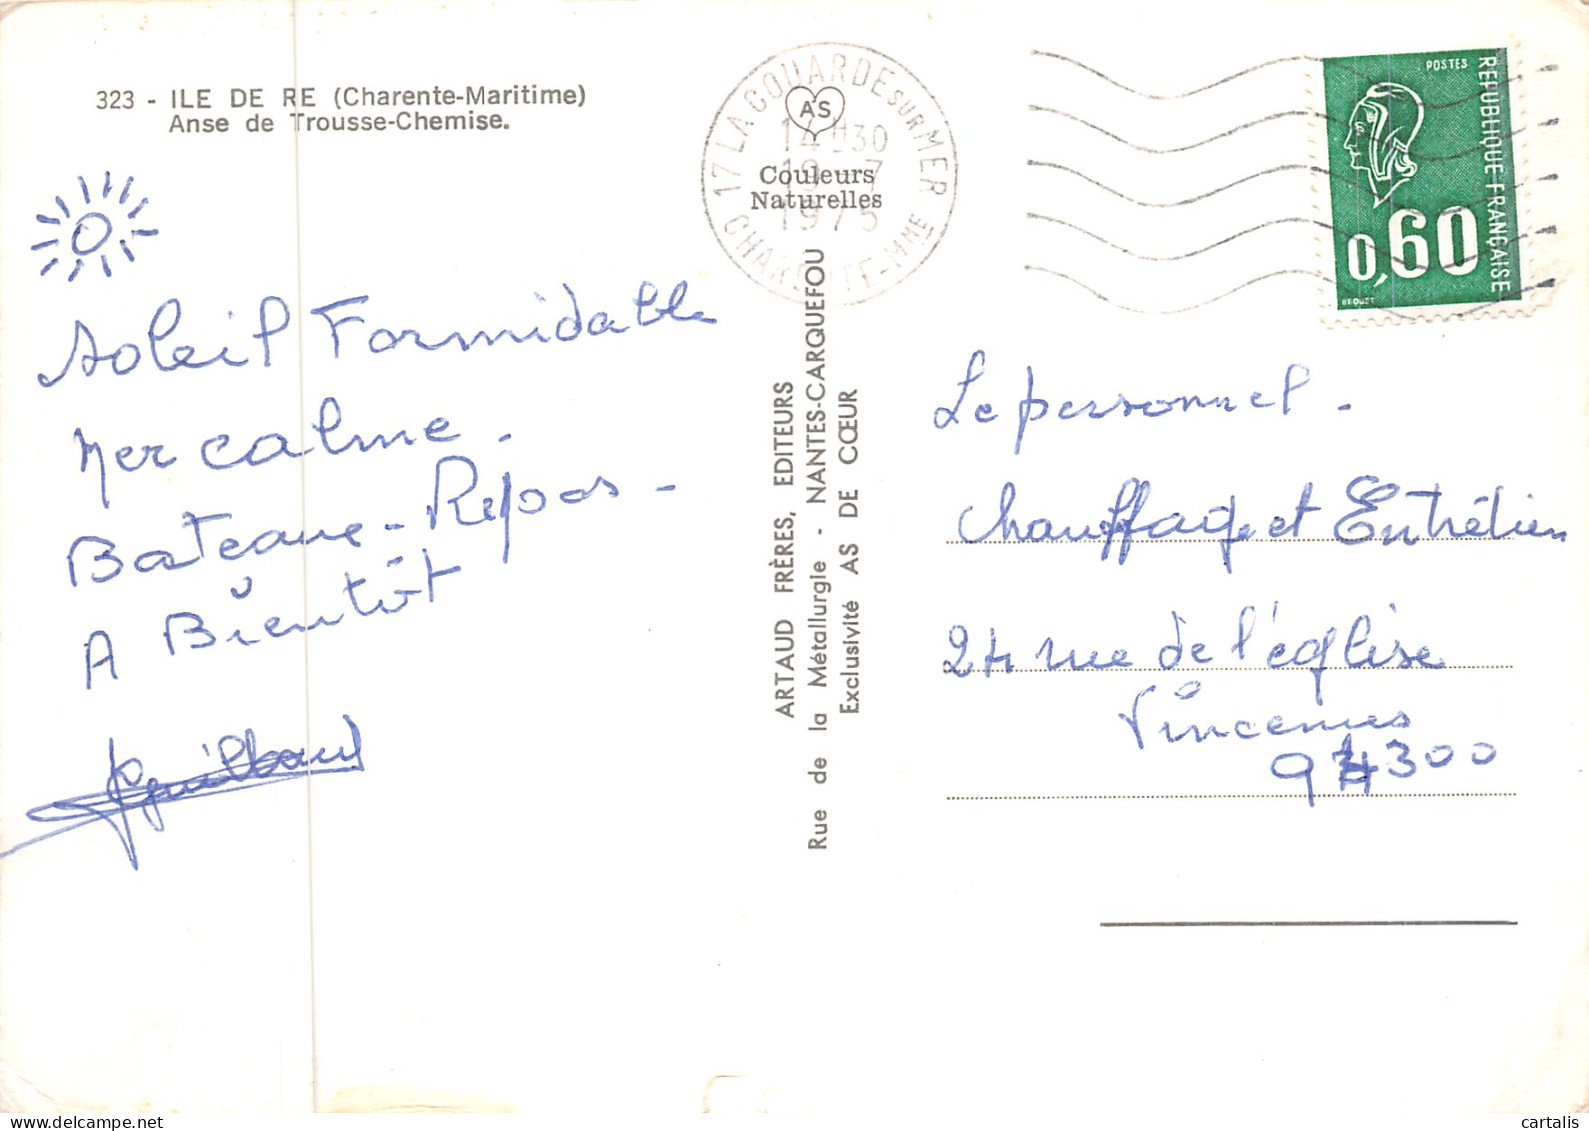 323 - ILE DE RE (Charente-Maritime)
Anse de Trousse-Chemise.
Soleil Formidable
Mer calme.
Bateaux - Repos -
A Bientôt
Guilbaud
17 LA COUARDE SUR MER
CHARENTE-MME
14H30
19 - 7
1975
AS
Couleurs
Naturelles
ARTAUD FRÈRES, EDITEURS
Rue de la Métallurgie - NANTES-CARQUEFOU
Exclusivité AS DE CŒUR
POSTES
REPUBLIQUE FRANÇAISE
0,60
BEQUET
Le personnel -
Chauffage et Entrétien
24 rue de l'église
Vincennes
94300
delcampe.net
cartalis